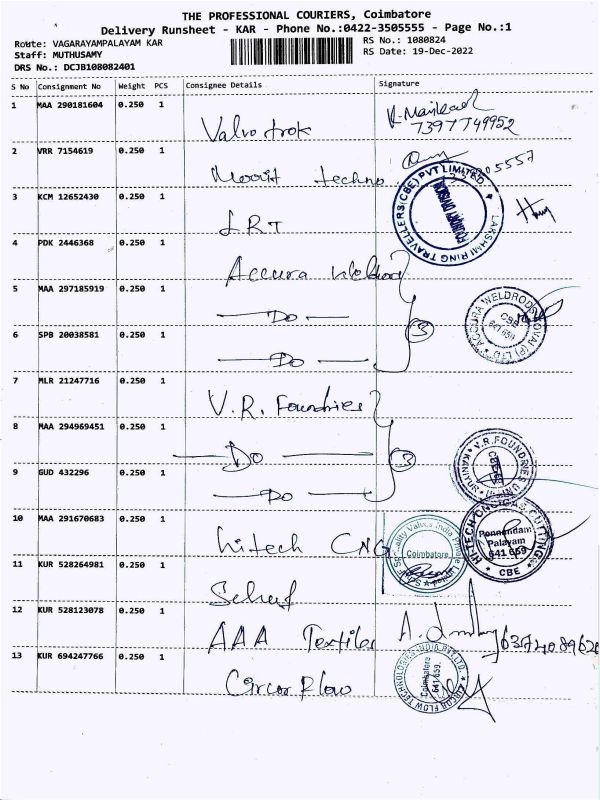 THE PROFESSIONAL COURIERS, Coimbatore
Delivery Runsheet - KAR - Phone No.:0422-3505555 - Page No.:1
Route: VAGARAYAMPALAYAM KAR
RS No.: 1080824
Staff: MUTHUSAMY
RS Date: 19-Dec-2022
DRS No.: DCJB108082401
S No Consignment No Weight PCS Consignee Details Signature
1 MAA 290181604 0.250 1
7397749952
2 VRR 7154619 0.250 1 techno
3 KCM 12652430 0.250 1 LRT
LAKSHMI RING TRAVELLERS(CBE) PVT LIMITED
FOUNDRY DIVISION
4 PDK 2446368 0.250 1 Accura
5 MAA 297185919 0.250 1 — Do —
ACCURA WELDRODS KOVAI (P) LTD
CBE
641 659
6 SPB 20038581 0.250 1 — Do —
3
7 MLR 21247716 0.250 1 V.R. Foundries
8 MAA 294969451 0.250 1 — Do —
3
V.R. FOUNDRIES
9 GUD 432296 0.250 1 — Do —
10 MAA 291670683 0.250 1 hitech CNG
Coimbatore
Ponnandam
Palayam
641 659
CBE
11 KUR 528264981 0.250 1
12 KUR 528123078 0.250 1 AAA Textiles
13 KUR 694247766 0.250 1 Circor Flow
CIRCOR FLOW TECHNOLOGIES INDIA PVT LTD.
Coimbatore
641 659.